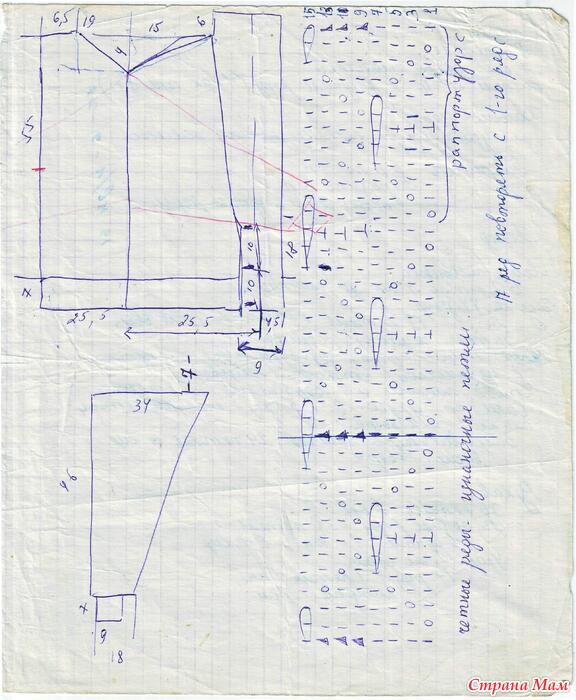 6,5
19
15
6
4
55
10
10
18
7
25,5
25,5
4,5
9
-7-
34
46
7
9
18
15
13
11
9
7
5
3
1
раппорт узора
17 ряд повторять с 1-го ряда
четные ряды - изнаночные петли.
Страна Мам